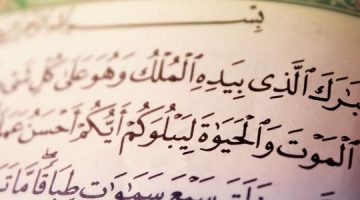 بِسْـ
بَٰرَكَ ٱلَّذِى بِيَدِهِ ٱلْمُلْكُ وَهُوَ عَلَىٰ كُلِّ شَىْ
ٱلْمَوْتَ وَٱلْحَيَوٰةَ لِيَبْلُوَكُمْ أَيُّكُمْ أَحْسَنُ عَمَلًا
خَلَقَ سَبْعَ سَمَٰوَٰتٍ طِبَاقًا مَّا تَ